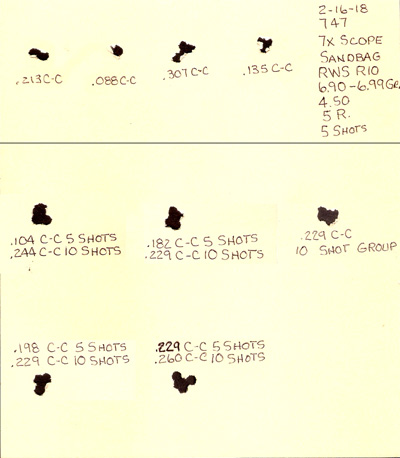 .213 C-C
.088 C-C
.307 C-C
.135 C-C
2-16-18
747
7X SCOPE
SANDBAG
RWS R10
6.90-6.99 GR.
4.50
5 R.
5 SHOTS
.104 C-C 5 SHOTS
.244 C-C 10 SHOTS
.182 C-C 5 SHOTS
.229 C-C 10 SHOTS
.229 C-C
10 SHOT GROUP
.198 C-C 5 SHOTS
.229 C-C 10 SHOTS
.229 C-C 5 SHOTS
.260 C-C 10 SHOTS